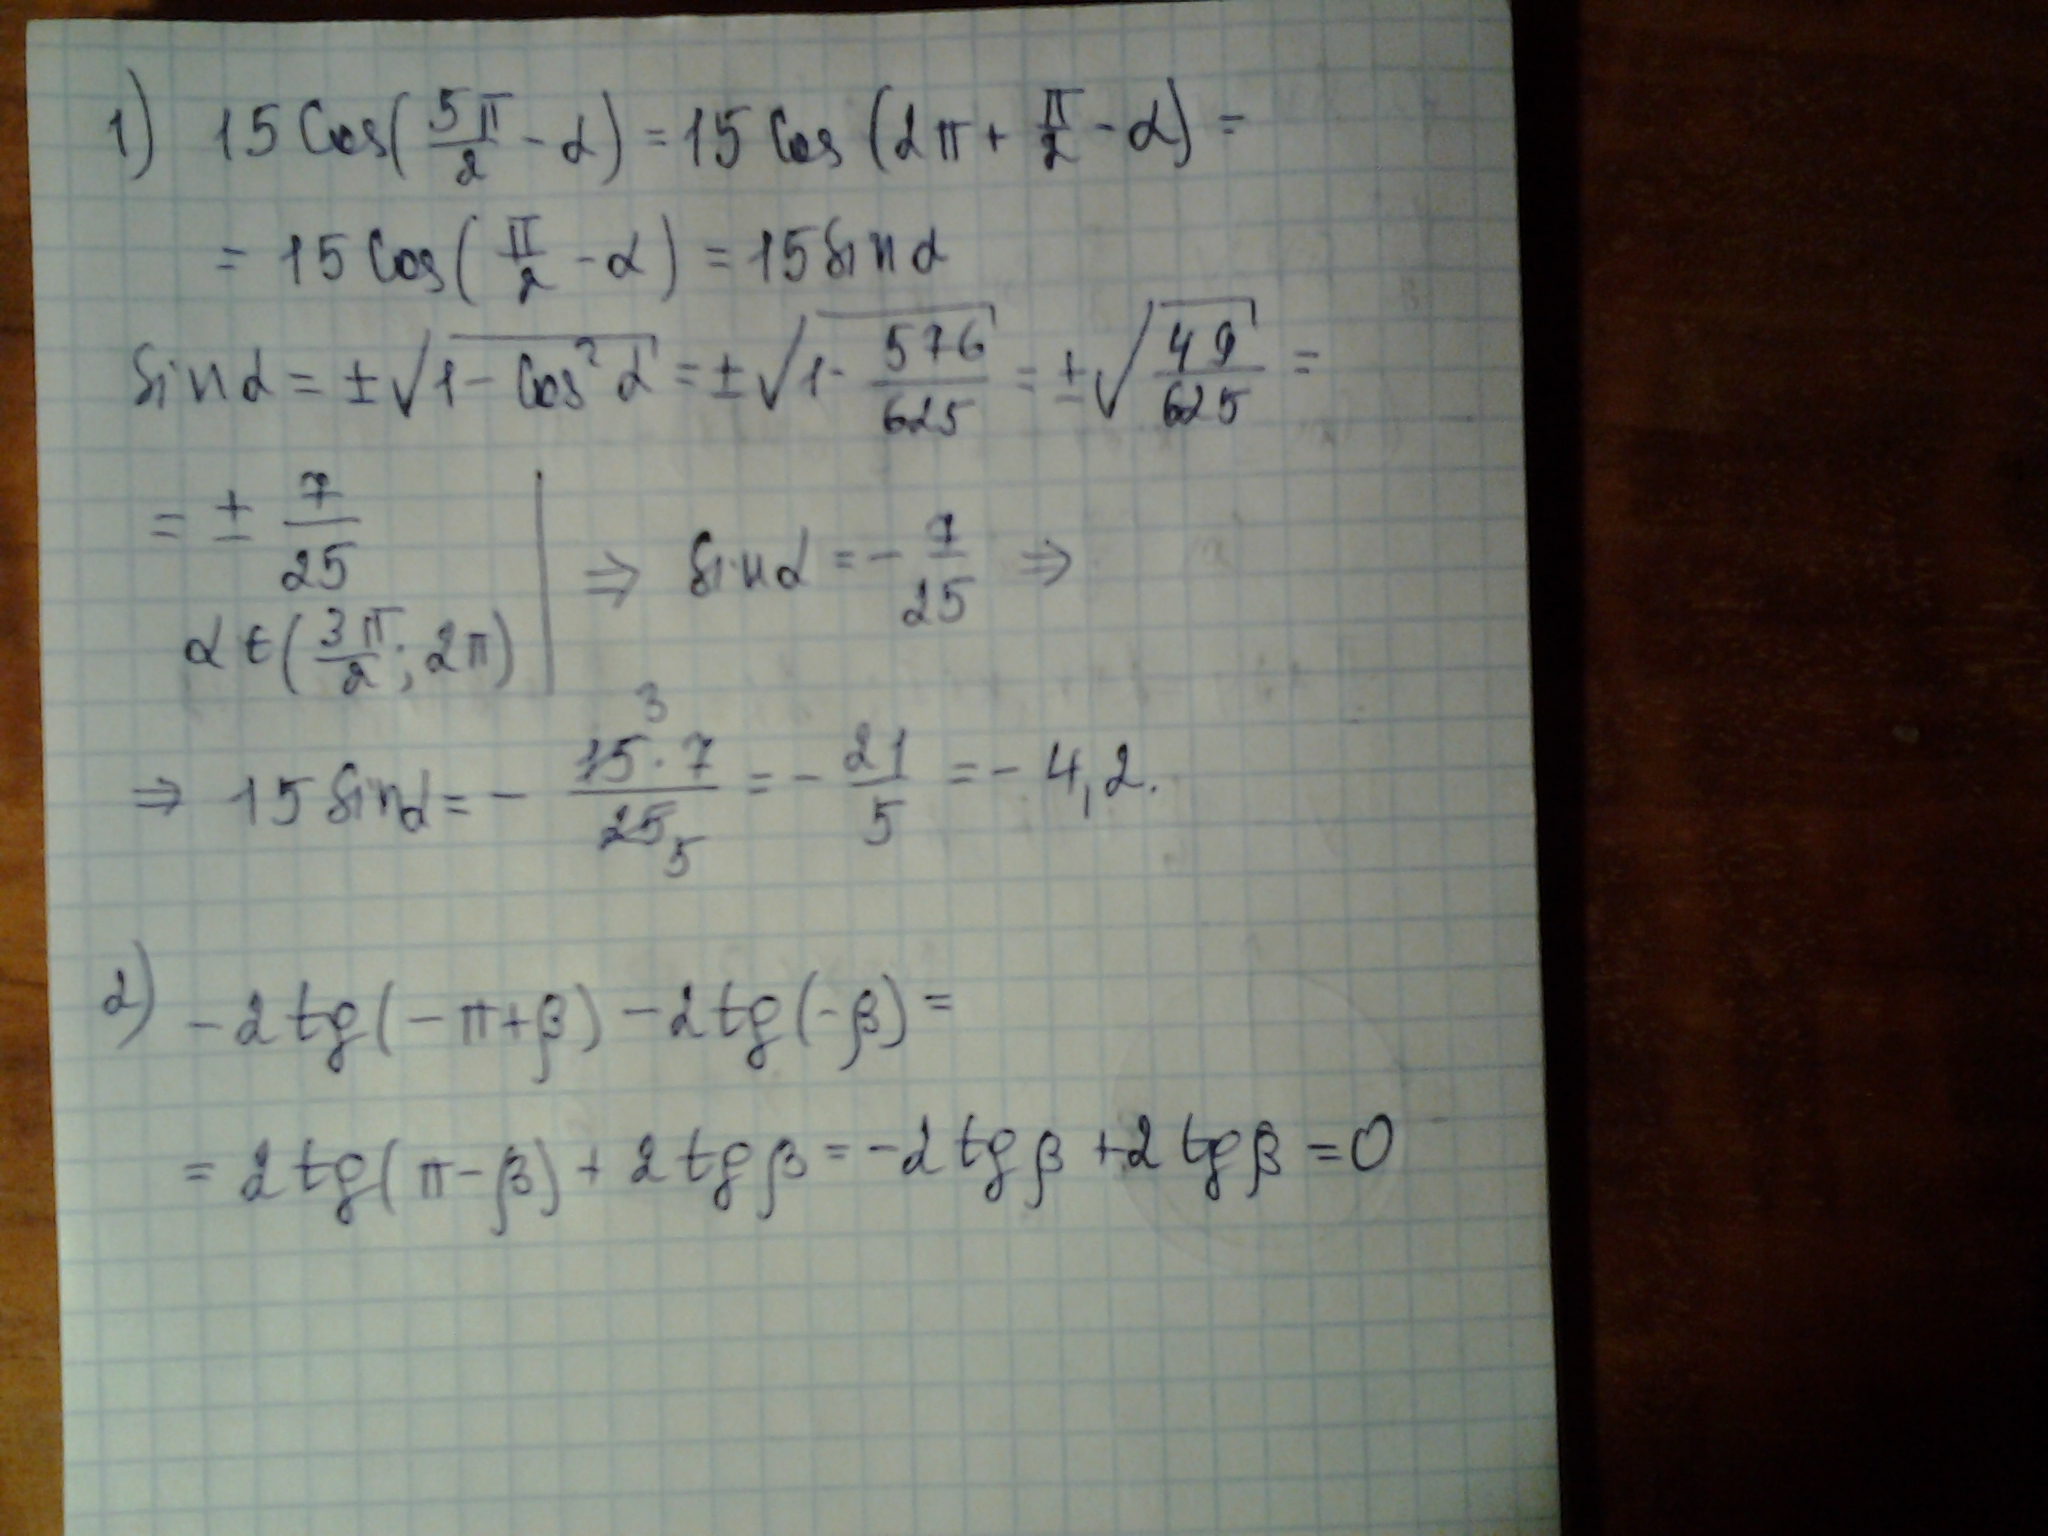 1) 15 Cos(5π/2 - α) = 15 Cos (2π + π/2 - α) =
= 15 Cos(π/2 - α) = 15 Sin α
Sin α = ±√(1 - Cos² α) = ±√(1 - 576/625) = ±√(49/625) =
= ± 7/25 | ⇒ Sin α = - 7/25 ⇒
α ∈ (3π/2; 2π)
⇒ 15 Sin α = - 15³ · 7 / 25₅ = - 21/5 = - 4,2.
2) - 2 tg(- π + β) - 2 tg(-β) =
= 2 tg(π - β) + 2 tg β = - 2 tg β + 2 tg β = 0